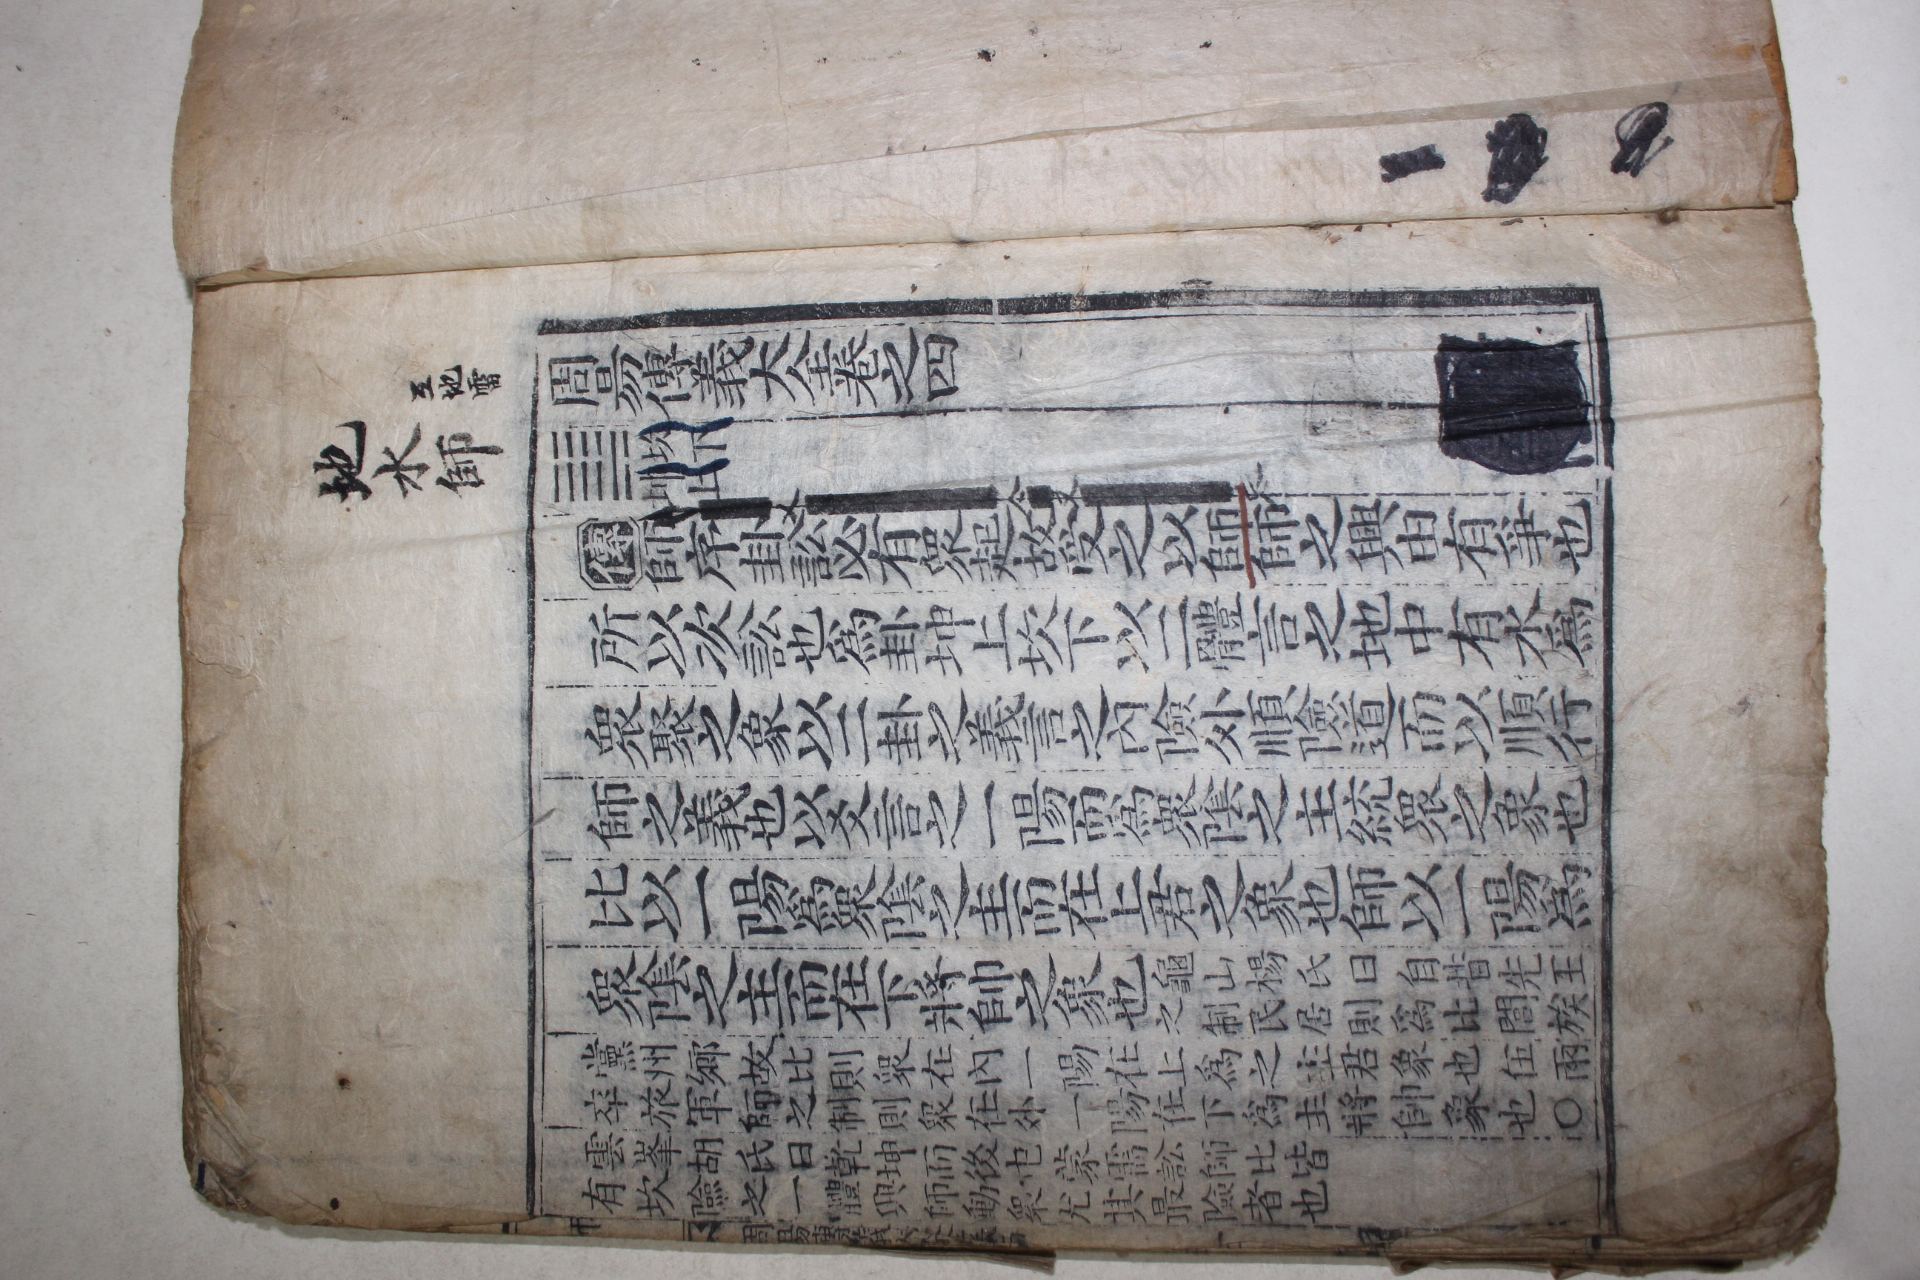 互地雷
地水師
周易傳義大全卷之四
坎下
坤上
傳師序卦訟必有衆起故受之以師師之興由有爭也
所以次訟也爲卦坤上坎下以二體言之地中有水爲
衆聚之象以二卦之義言之內險外順險道而以順行
師之義也以爻言之一陽而爲衆陰之主統衆之象也
比以一陽爲衆陰之主而在上君之象也師以一陽爲
衆陰之主而在下將帥之象也
龜山楊氏曰自昔先王
之制民居則爲比閭族
黨州鄉故比則衆在內一陽在上爲之主君象也伍兩
卒旅軍師之制則衆在外一陽在下爲主將帥象也〇
雲峯胡氏曰乾坤而後屯蒙需訟師比皆
有坎險之一體興師動衆尤其最險者也